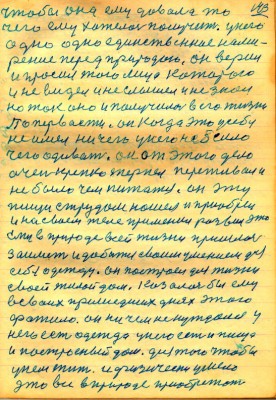 чтобы она ему давала то
чего ему хотелось получит. у него
одно одно единственное наме-
рение перед природою. он верил
и просил того лица которого
и не видел и не слышел и не знал
но так оно и получилось в его жизни
По первости. он когда это себе
не имел ничего у него не было
чего одеват. он от этого дело
очен крепко терпел переживал и
не было чем питатся. он эту
пищу струдом нашел и приобрел
и на своем теле применил развил это
ему в природе всей жизни пришлось
и добится своим умением для
себя одежду. он построил для жизни
своей жилой дом. Казалось бы ему
во своих пришедших днях этого
фатило. он ни чем не нуждался у
него ест одежда у него ест и пища
и построеный дом. для того чтобы
в нем жит. и физически умело
это все в природе приобретат